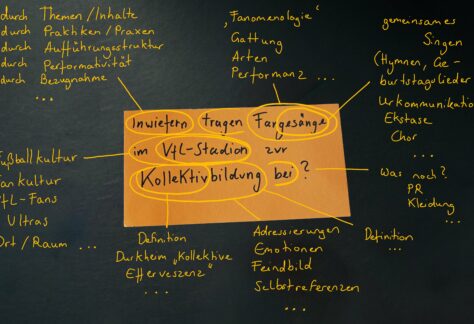 durch Themen / Inhalte
durch Praktiken / Praxen
durch Aufführungsstruktur
durch Performativität
durch Bezugnahme
...
„Fanomenologie“
Gattung
Arten
Performanz ...
gemeinsames
Singen
(Hymnen, Ge-
burtstagslieder
Urkommunikatio
Ekstase
Chor
...
Inwiefern tragen Fangesänge
im VfL-Stadion zur
Kollektivbildung bei?
ußballkultur
ankultur
fL-Fans
Ultras
Ort / Raum ...
Definition
Durkheim „Kollektive
Efferveszenz“
...
Adressierungen
Emotionen
Feindbild
Selbstreferenzen
...
Definition
...
Was noch?
PR
Kleidung
...